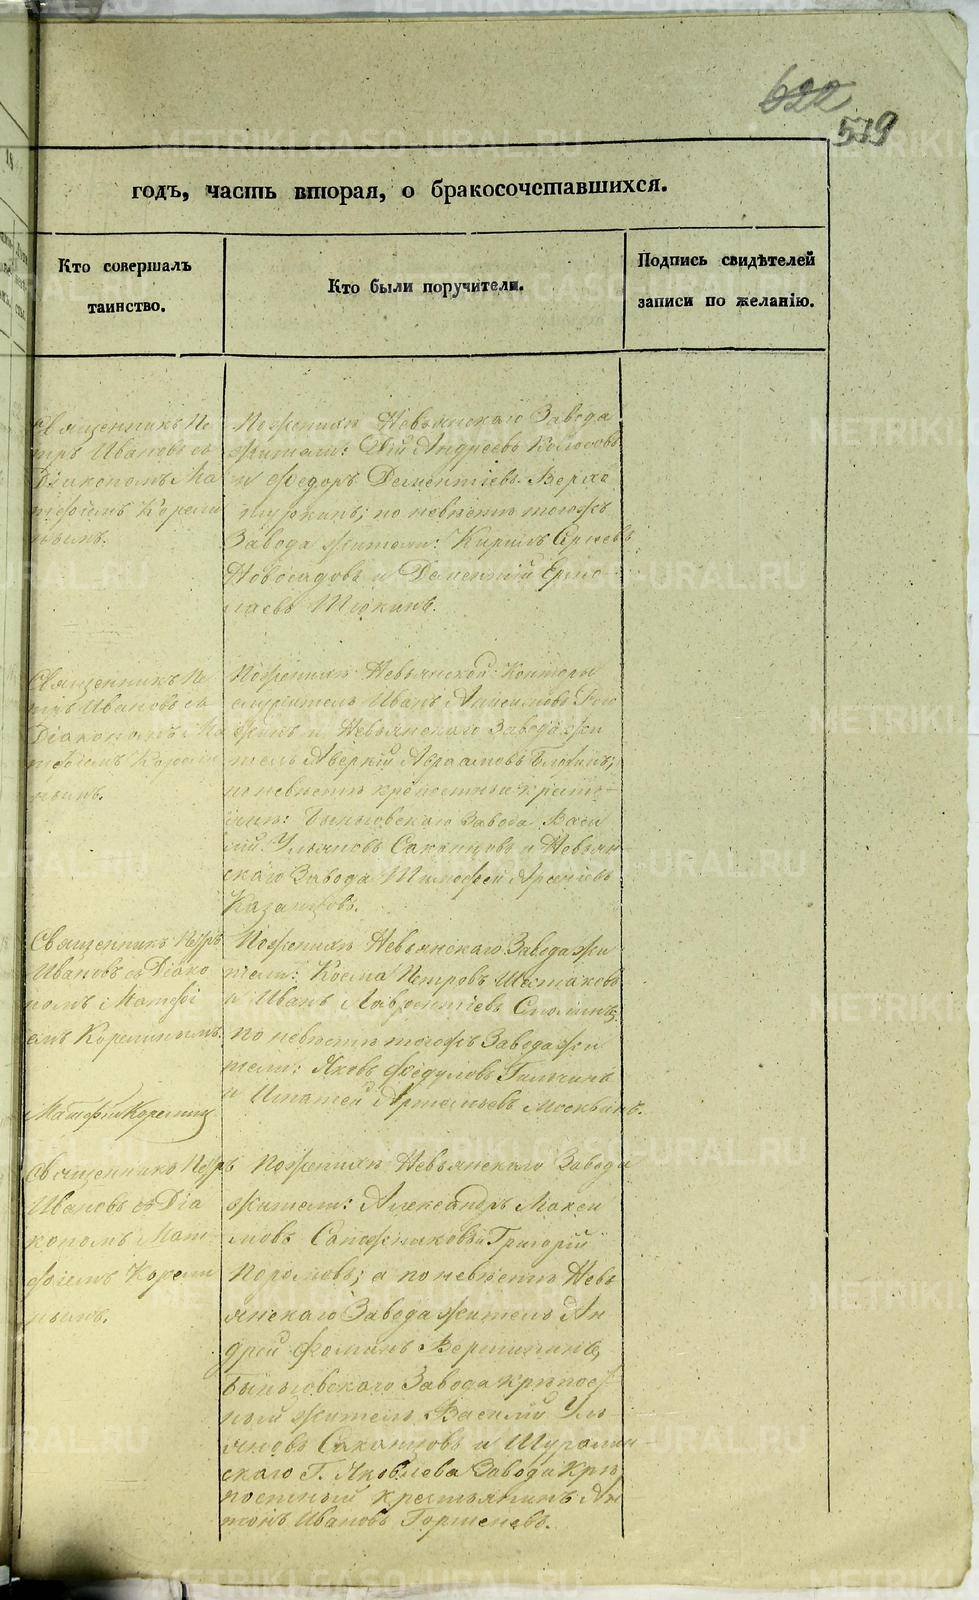 622
519
годъ, часть вторая, о бракосочетавшихся.
Кто совершалъ
таинство.
Кто были поручители.
Подпись свидѣтелей
записи по желанію.
Священникъ Пе
тръ Ивановъ съ
Діакономъ Ма
тфіемъ Корели
нымъ.
По женихѣ Невьянскаго Завода
жители: Андреевъ Колосовъ
и Федоръ Дементіевъ Верхо
туркинъ; по невѣстѣ тогожъ
Завода жители: Кирилъ Сергѣевъ
Новосадовъ и Дементій Ермо-
лаевъ Шюкинъ.
Священникъ Пе
тръ Ивановъ съ
Діакономъ Ма
тфіемъ Корели
нымъ.
По женихѣ Невьянской Конторы
служитель Иванъ Анисимовъ
и Невьянскаго Завода жи
тель Аверкій Авраамовъ
по невѣстѣ крѣпостные крестья-
не: Быньговскаго Завода Васи
лій Ульяновъ Саканцовъ и Невьян-
скаго Завода Тимофей Арсеніевъ
Казанцовъ.
Священникъ Петръ
Ивановъ съ Діако
номъ Матфі
емъ Корелинымъ.
По женихѣ Невьянскаго Завода жи
тели: Косма Петровъ Шестаковъ
и Иванъ Лаврентіевъ
по невѣстѣ тогожъ Завода жи
тели: Яковъ Федуловъ
и Ипатей Артемьевъ Москвинъ.
Матфій Корелинъ
Священникъ Петръ
Ивановъ съ Діа
кономъ Мат-
фіемъ Корели
нымъ.
По женихѣ Невьянскаго Завода
жители: Александръ Макси
мовъ Сапожниковъ и Григорій
а по невѣстѣ Невь
янскаго Завода житель Ан
дрей Фоминъ Вершининъ,
Быньговскаго Завода крѣпост-
ной житель Василій Уль
яновъ Саканцовъ и Шуралин-
скаго Г. Яковлева Завода Крѣ
постный крестьянинъ Ан
тонъ Ивановъ Горшеневъ.
METRIKI.GASO-URAL.RU